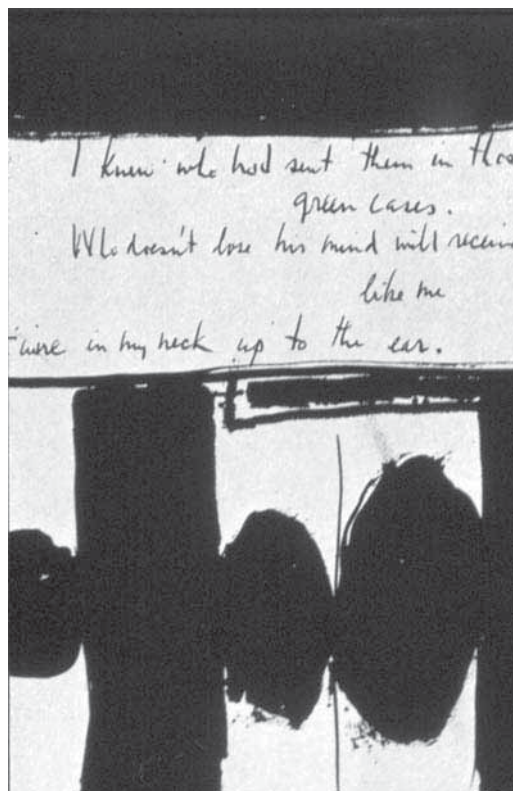 I knew who had sent them in thos
green cases.
Who doesn't lose his mind will receiv
like me
wire in my neck up to the ear.